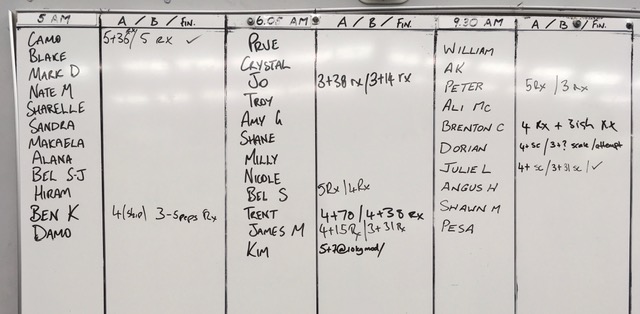 5 AM A / B / FIN. 6.05 AM A / B / FIN. 9.30 AM A / B / FIN.
CAMO 5+36/5 Rx ✓
BLAKE
MARK D
NATE M
SHARELLE
SANDRA
MAKAELA
ALANA
BEL S-J
HIRAM
BEN K 4(ship) 3-5 reps Rx
DAMO
PRUE
CRYSTAL
JO 3+38 rx/3+14 rx
TROY
AMY G
SHANE
MILLY
NICOLE
BEL S 5Rx/4Rx
TRENT 4+70/4+38 Rx
JAMES M 4+15 Rx/3+31 Rx
KIM 5+7@10kg mod/
WILLIAM
AK
PETER 5Rx/3 Rx
ALI MC
BRENTON C 4 Rx + 3ish RX
DORIAN 4+sc/3+? scale/attempt
JULIE L 4+ sc/3+31 sc/✓
ANGUS H
SHAWN M
PESA